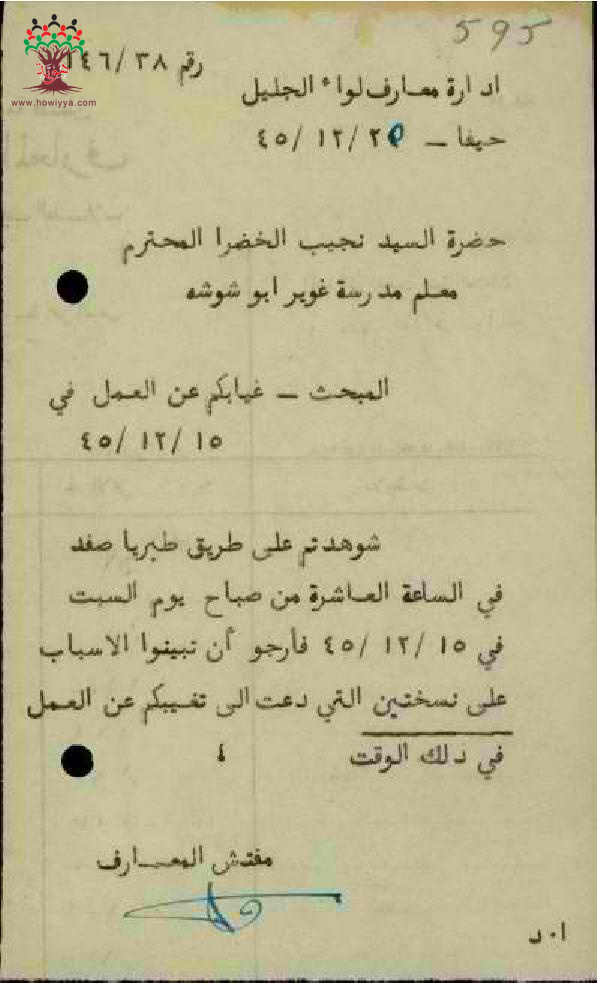 595
www.howiyya.com
رقم ١٤٦/٣٨
ادارة معارف لواء الجليل
حيفا ـ ٢٠/ ١٢/ ٤٥
حضرة السيد نجيب الخضرا المحترم
معلم مدرسة غوير ابو شوشه
المبحث ـ غيابكم عن العمل في
١٥/ ١٢/ ٤٥
شوهدتم على طريق طبريا صفد
في الساعة العاشرة من صباح يوم السبت
في ١٥/ ١٢/ ٤٥ فأرجو أن تبينوا الاسباب
على نسختين التي دعت الى تغيبكم عن العمل
في ذلك الوقت ٤
مفتش المعارف
ا٠د